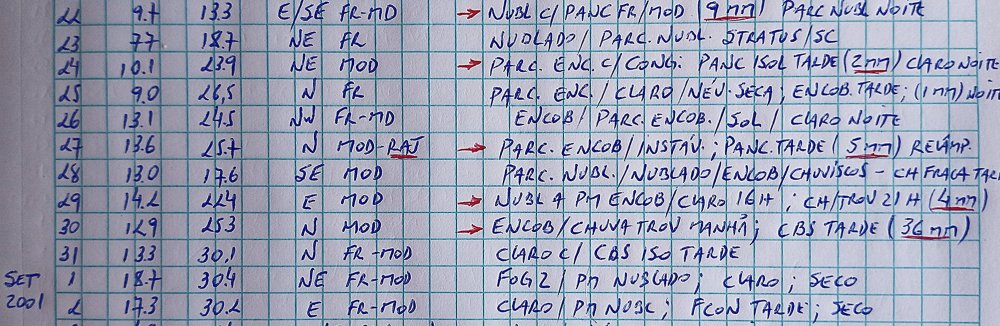 22 9.7 13.3 E/SE FR-MD → NUBL C/ PANC FR/MOD (9 mm) PARC NUBL NOITE
23 7.7 18.7 NE FR NUBLADO / PARC. NUBL. STRATUS/SC
24 10.1 23.9 NE MOD → PARC. ENC. C/ CONG. PANC ISOL TARDE (2 mm) CLARO NOITE
25 9.0 26,5 N FR PARC. ENC. / CLARO / NÉV. SECA; ENCOB. TARDE; (1 mm) NOITE
26 13.1 24.5 NW FR-MD ENCOB / PARC. ENCOB. / SOL / CLARO NOITE
27 13.6 25.7 N MOD-RAJ → PARC. ENCOB / INSTÁV.; PANC. TARDE (5 mm) RELÂMP.
28 13.0 17.6 SE MOD PARC. NUBL. / NUBLADO / ENCOB / CHUVISCOS - CH FRACA TAR
29 14.2 22.4 E MOD → NUBL A PM ENCOB / CLARO 16H; CH/TROV 21 H (4 mm)
30 12.9 25.3 N MOD → ENCOB / CHUVA TROV MANHÃ; CBS TARDE (36 mm)
31 13.3 30.1 N FR-MOD CLARO C/ CBS ISO TARDE
SET 1 18.7 30.4 NE FR-MOD FOG 2 / PM NUBLADO; CLARO; SECO
2001 2 17.3 30.2 E FR-MOD CLARO / PM NUBL; FCON TARDE; SECO